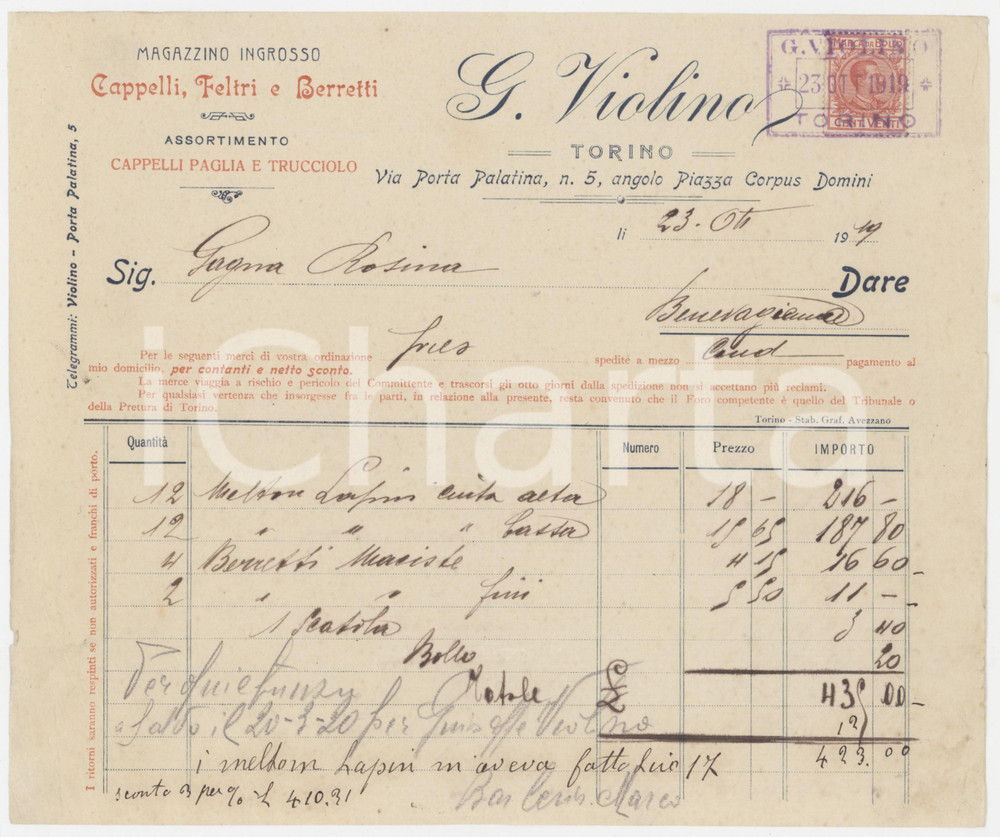 MAGAZZINO INGROSSO
Cappelli, Feltri e Berretti
ASSORTIMENTO
CAPPELLI PAGLIA E TRUCCIOLO
Telegrammi: Violino - Porta Palatina, 5
G. Violino
TORINO
Via Porta Palatina, n. 5, angolo Piazza Corpus Domini
MARCA DA BOLLO
G. VIOLINO
23 OTT 1919
TORINO
CENT. VENTI
li 23. Ott 1919
Sig. Gagna Rosina Dare
Benevagienna
Per le seguenti merci di vostra ordinazione spedite a mezzo Cond pagamento al
mio domicilio, per contanti e netto sconto.
La merce viaggia a rischio e pericolo del Committente e trascorsi gli otto giorni dalla spedizione non si accettano più reclami.
Per qualsiasi vertenza che insorgesse fra le parti, in relazione alla presente, resta convenuto che il Foro competente è quello del Tribunale o
della Pretura di Torino.
Torino - Stab. Graf. Avezzano
I ritorni saranno respinti se non autorizzati e franchi di porto.
Quantità Numero Prezzo IMPORTO
12 Melton Lapin cinta alta 18 - 216 -
12 " " " bassa 15 65 187 80
4 Berretti Maciste 4 15 16 60
2 " " fini 5 50 11 -
1 Scatola 3 40
Bollo 20
Totale £ 435 00
Per quietanza 12
saldo il 20-3-20 per Giuseppe Violino
423.00
i meltom Lapin m aveva fatto Lire 17
sconto 3 per % £ 410.31
Marco
iCharta